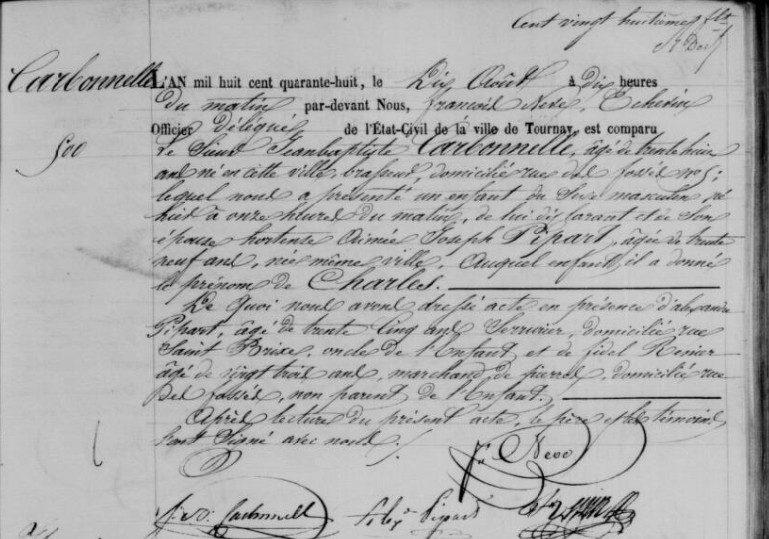 Cent vingt huitième flt
Carbonnelle
L'AN mil huit cent quarante-huit, le Dix Août à Dix heures
Du matin par-devant Nous, françois Neve, Echevin
Officier Délégué de l'État-Civil de la ville de Tournay, est comparu
500
Le Sieur Jeanbaptiste Carbonnelle, âgé de trente huit
ans né en cette ville, brasseur, domicilié rue des fossés n° 5;
lequel nous a présenté un enfant du Sexe masculin né
hier à onze heures du matin, de lui déclarant et de Son
épouse hortense Aimée Joseph Pipart, âgée de trente
neuf ans, née même ville. Auquel enfant il a donné
le prénom de Charles.
De Quoi nous avons dressé acte en présence d'alexandre
Pipart, âgé de trente Cinq ans Serrurier, domicilié rue
Saint Brixe, oncle de l'Enfant, et de fidel Renier
âgé de vingt trois ans, marchand de pierres, domicilié rue
Des fossés, non parent de l'Enfant.
Après lecture du présent acte, le père et les témoins
sont Signé avec nous.
fs Neve
J. Bte Carbonnelle Alexe Pipart